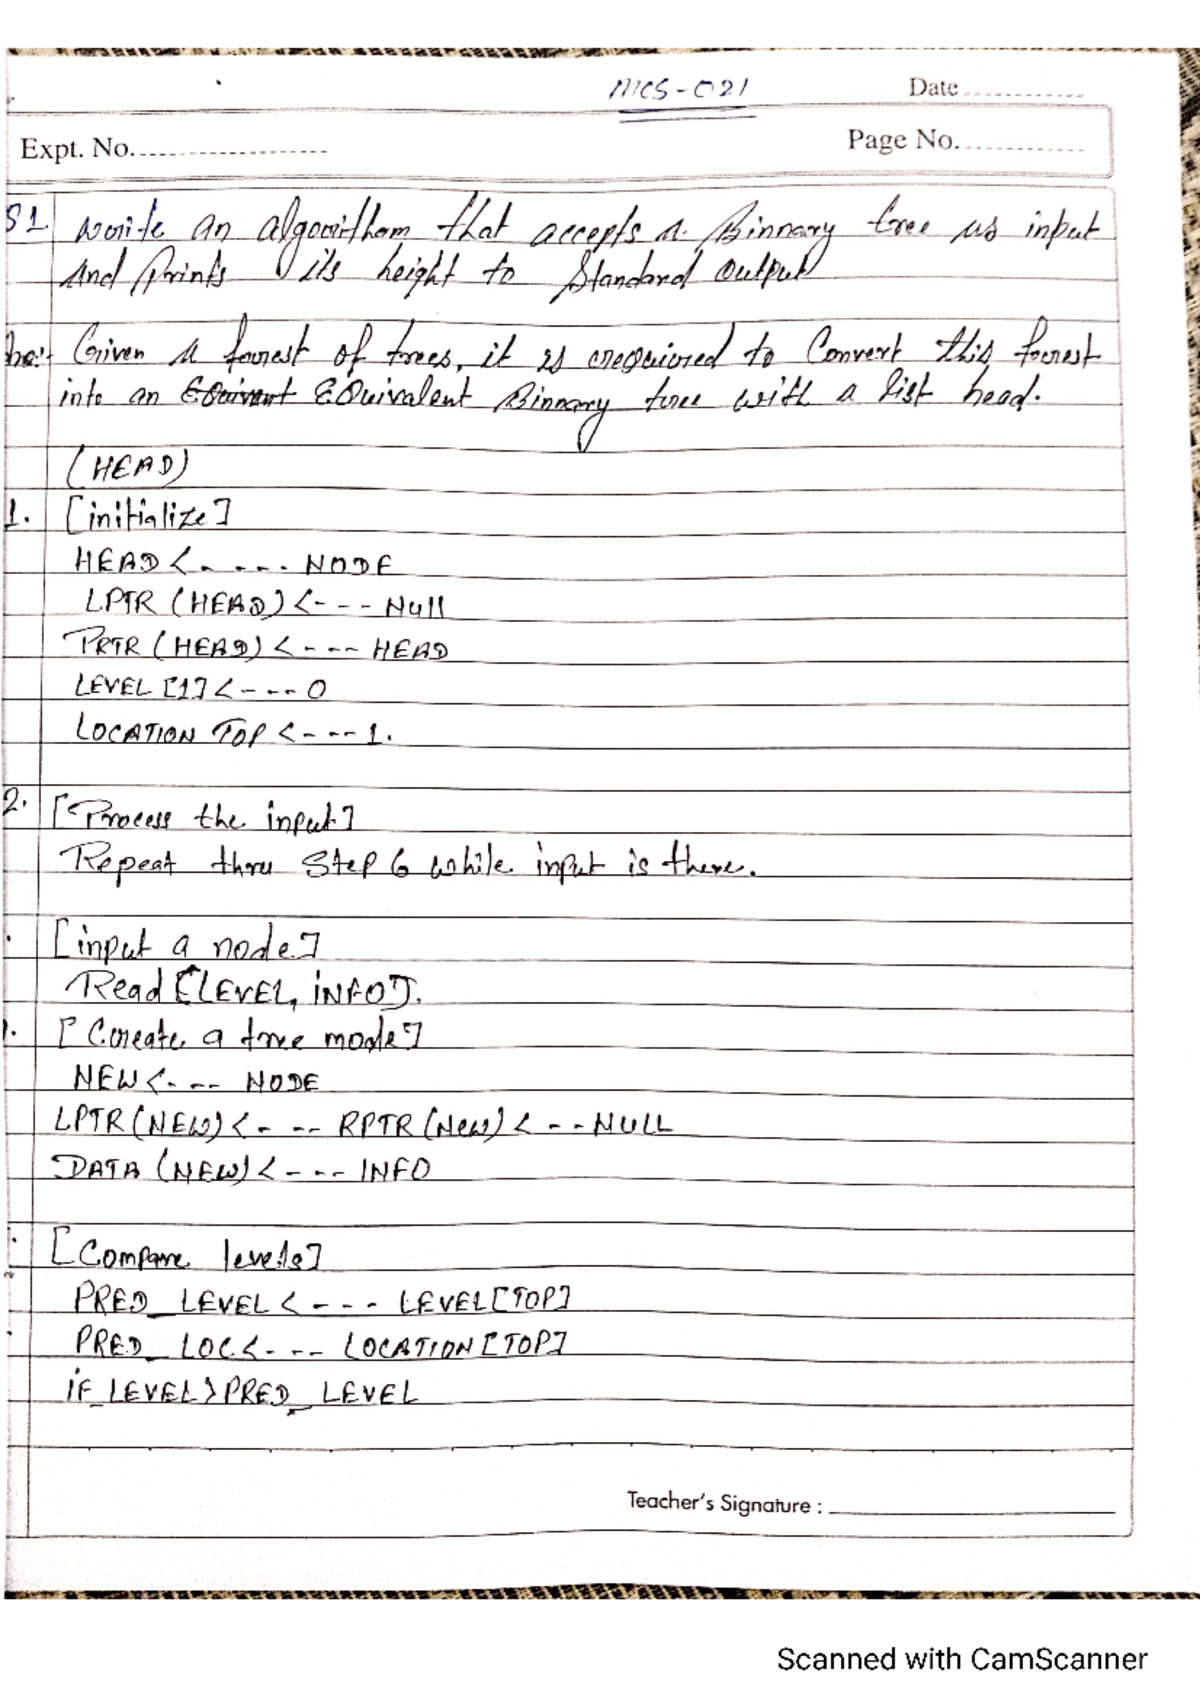 MCS-021
Date
Expt. No.
Page No.
write an algoritham that accepts a Binnary tree as input
And Prints its height to Standard output
Given a forest of trees, it is required to Convert this forest
into an EQuivalent Binnary tree with a list head.
(HEAD)
1. [initialize]
HEAD <---- NODE
LPTR (HEAD) <--- Null
PRTR (HEAD) <---- HEAD
LEVEL [1] <---- 0
LOCATION TOP <---- 1.
2. [Process the input]
Repeat thru Step 6 while input is there.
[input a node]
Read [LEVEL, iNFO].
[Create a tree node]
NEW <--- NODE
LPTR(NEW) <--- RPTR(New) <-- NULL
DATA (NEW) <---- INFO
[Compare levels]
PRED_LEVEL <--- LEVEL[TOP]
PRED_LOC <--- LOCATION [TOP]
iF_LEVEL>PRED_LEVEL
Teacher's Signature :
Scanned with CamScanner